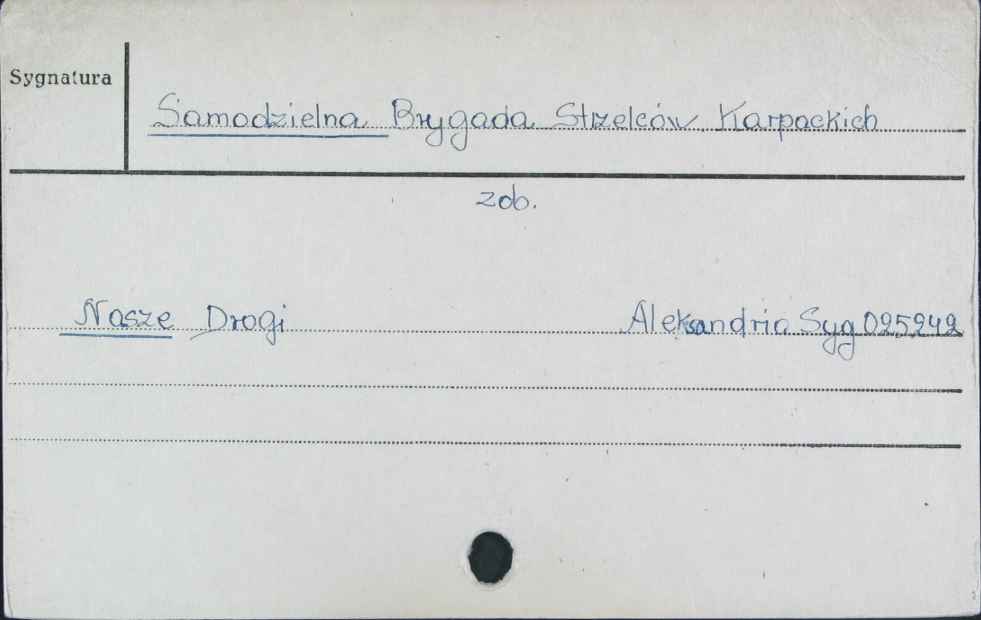 Sygnatura
Samodzielna Brygada Strzelców Karpackich
zob.
Nasze Drogi Aleksandria Syg 025242